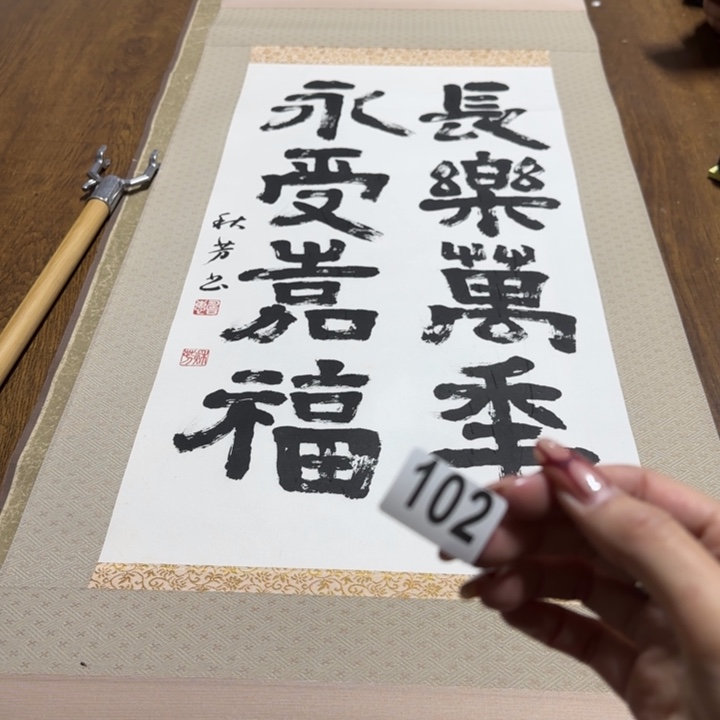 長樂萬年
永受嘉福
秋芳书
102